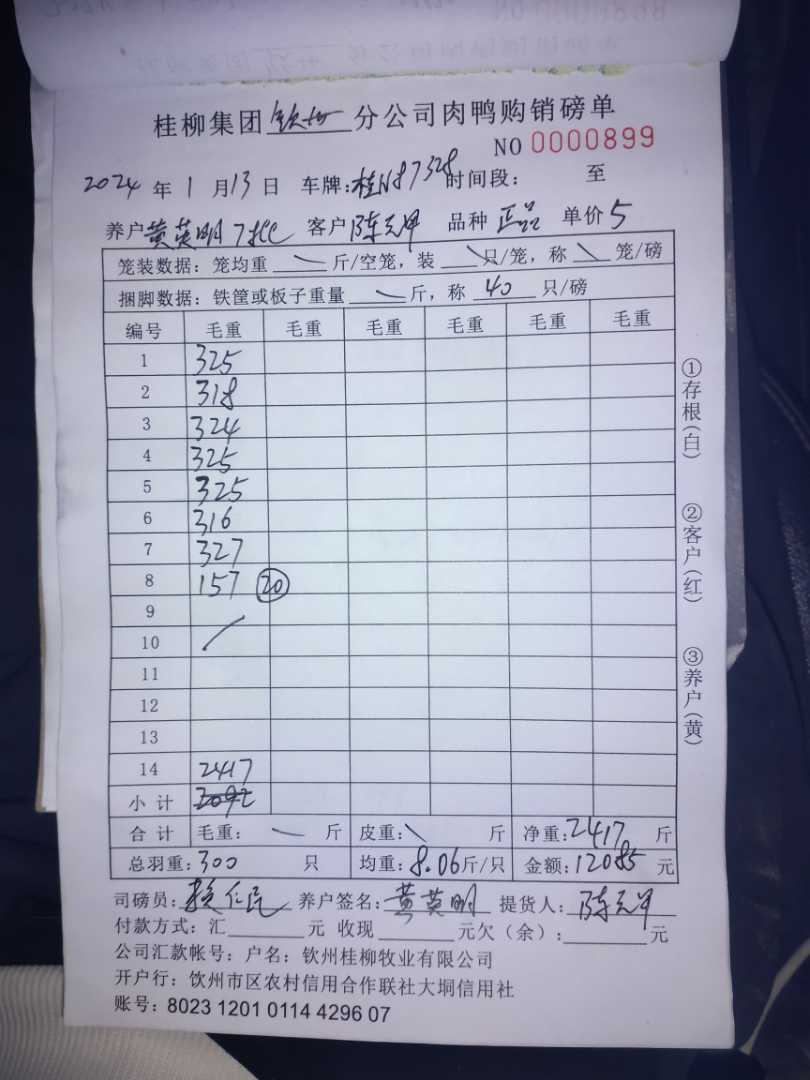 桂柳集团钦州分公司肉鸭购销磅单
NO 0000899
2024年1月13日 车牌:桂N87328 时间段: 至
养户黄英明7批 客户陈元甲 品种正品 单价5
笼装数据:笼均重 斤/空笼,装 只/笼,称 笼/磅
捆脚数据:铁筐或板子重量 斤,称 40 只/磅
编号 毛重 毛重 毛重 毛重 毛重 毛重
1 325
2 318
3 324
4 325
5 325
6 316
7 327
8 157 20
9
10
11
12
13
14 2417
小计 2092
合计 毛重: 斤 皮重: 斤 净重:2417斤
总羽重:300 只 均重:8.06斤/只 金额:12085元
司磅员: 养户签名:黄英明 提货人:陈元甲
付款方式:汇 元 收现 元欠(余): 元
公司汇款帐号:户名:钦州桂柳牧业有限公司
开户行:饮州市区农村信用合作联社大垌信用社
账号:8023 1201 0114 4296 07
①存根(白) ②客户(红) ③养户(黄)